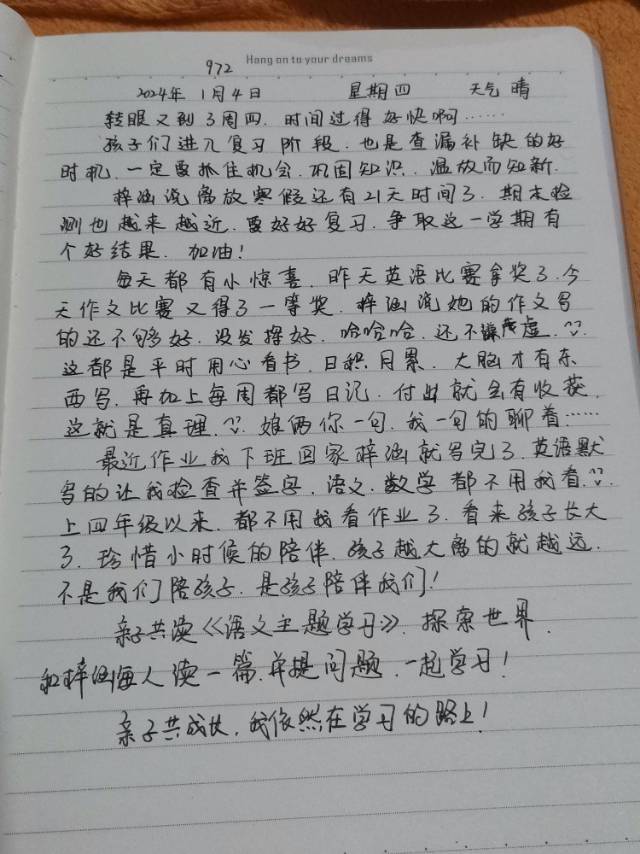 Hang on to your dreams
972
2024年 1月4日 星期四 天气 晴
转眼又到了周四，时间过得好快啊……
孩子们进入复习阶段，也是查漏补缺的好
时机，一定要抓住机会，巩固知识，温故而知新．
梓涵说离放寒假还有21天时间了，期末检
测也越来越近，要好好复习，争取这一学期有
个好结果，加油！
每天都有小惊喜，昨天英语比赛拿奖了，今
天作文比赛又得了一等奖，梓涵说她的作文写
的还不够好，没发挥好，哈哈哈，还不谦虚，??
这都是平时用心看书，日积月累，大脑才有东
西写，再加上每周都写日记，付出就会有收获，
这就是真理，?? 娘俩你一句，我一句的聊着……
最近作业我下班回家梓涵就写完了，英语默
写的让我检查并签字，语文，数学都不用我看，??
上四年级以来，都不用我看作业了，看来孩子长大
了，珍惜小时候的陪伴，孩子越大离的就越远，
不是我们陪孩子，是孩子陪伴我们！
亲子共读《语文主题学习》，探索世界，
和梓涵每人读一篇，并提问题，一起学习！
亲子共成长，我依然在学习的路上！